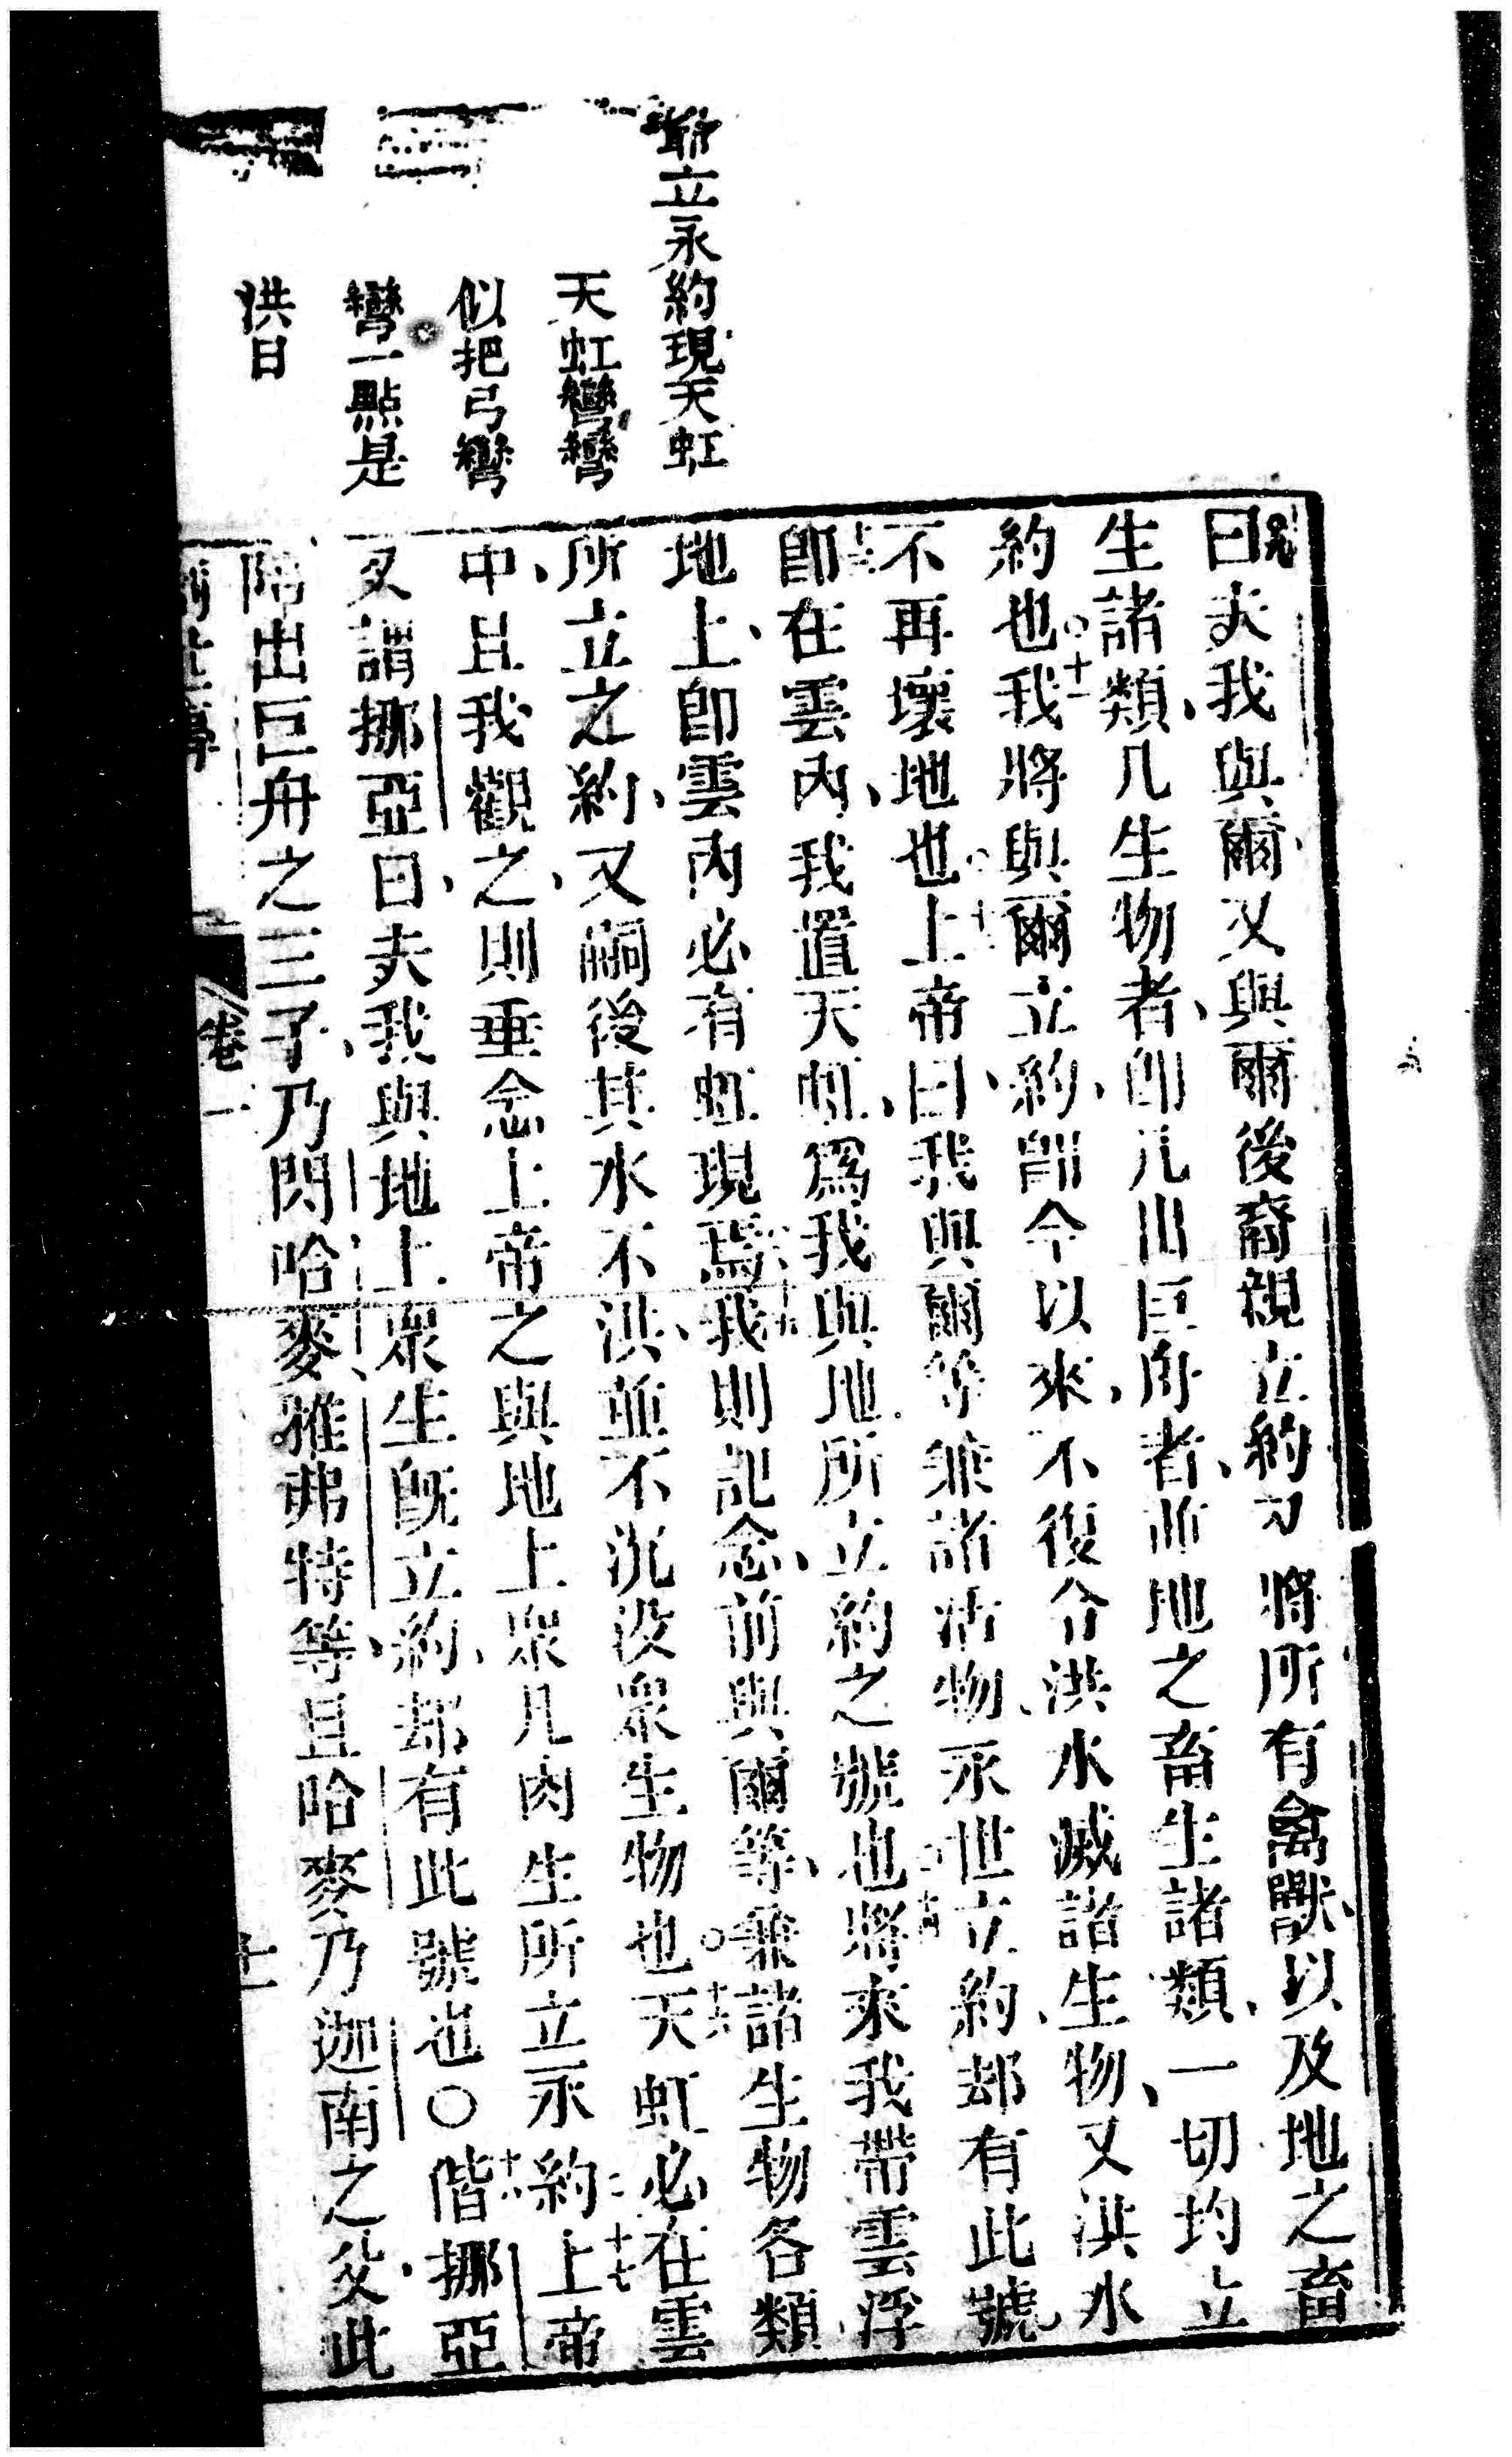 爺立永約現天虹
天虹彎彎
似把弓彎
彎一點是
洪日
曰夫我與爾又與爾後裔親立約九將所有禽獸以及地之畜
生諸類凡生物者卽凡出巨舟者並地之畜生諸類一切均立
約也○十一我將與爾立約卽今以來不復令洪水滅諸生物又洪水
不再壞地也十二上帝曰我與爾等兼諸活物永世立約却有此號
卽在雲內我置天虹爲我與地所立約之號也十四將來我帶雲浮
地上卽雲內必有虹現焉我則記念前與爾等兼諸生物各類
所立之約又嗣後其水不洪並不沉沒眾生物也○天虹必在雲
中且我觀之則垂念上帝之與地上眾凡肉生所立永約十七上帝
又謂挪亞曰夫我與地上眾生旣立約却有此號也○十八偕挪亞
陪出巨舟之三子乃閃哈麥雅弗特等且哈麥乃迦南之父此
卷一
十一